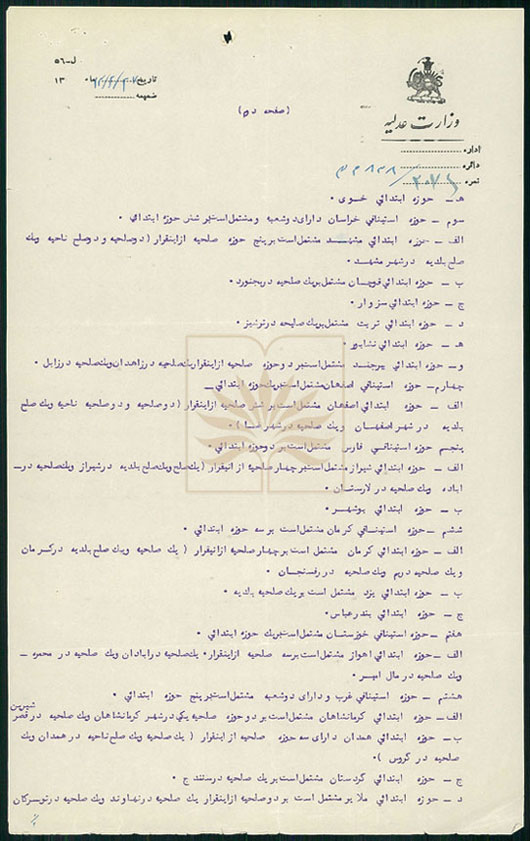 ل-۵۶
تاریخ ماه ۱۳
ضمیمه
وزارت عدلیه
(صفحه دوم)
اداره
دائره
نمره
هـ ـ حوزه ابتدائی خوی .
سوم ـ حوزه استینافی خراسان دارای دوشعبه و مشتمل است بر شش حوزه ابتدائی .
الف ـ حوزه ابتدائی مشهد مشتمل است بر پنج حوزه صلحیه از اینقرار ( دوصلحیه و دوصلح ناحیه ویك
صلح بلدیه در شهر مشهد .
ب ـ حوزه ابتدائی قوچان مشتمل بریك صلحیه در بجنورد .
ج ـ حوزه ابتدائی سبزوار .
د ـ حوزه ابتدائی تربت مشتمل بریك صلحیه در ترشیز .
هـ ـ حوزه ابتدائی نشابور .
و ـ حوزه ابتدائی بیرجند مشتمل است بر دو حوزه صلحیه از اینقرار یك صلحیه در زاهدان ویك صلحیه در زابل .
چهارم ـ حوزه استینافی اصفهان مشتمل است بریك حوزه ابتدائی ـ
الف ـ حوزه ابتدائی اصفهان مشتمل است بر شش صلحیه از اینقرار ( دو صلحیه و دو صلحیه ناحیه ویك صلح
بلدیه در شهر اصفهان ویك صلحیه در شهرضا ) .
پنجم حوزه استینافی فارس مشتمل است بر دو حوزه ابتدائی .
الف ـ حوزه ابتدائی شیراز مشتمل است بر چهار صلحیه از اینقرار ( یك صلح ویك صلح بلدیه در شیراز ویك صلحیه در ـ
اباده ویك صلحیه در لارستان .
ب ـ حوزه ابتدائی بوشهر .
ششم ـ حوزه استینافی کرمان مشتمل است بر سه حوزه ابتدائی .
الف ـ حوزه ابتدائی کرمان مشتمل است بر چهار صلحیه از اینقرار ( یك صلحیه ویك صلح بلدیه در کرمان
ویك صلحیه در بم ویك صلحیه در رفسنجان .
ب ـ حوزه ابتدائی یزد مشتمل است بریك صلحیه بلدیه .
ج ـ حوزه ابتدائی بندرعباس .
هفتم ـ حوزه استینافی خوزستان مشتمل است بریك حوزه ابتدائی .
الف ـ حوزه ابتدائی اهواز مشتمل است بر سه صلحیه از اینقرار . یك صلحیه در ابادان ویك صلحیه در محمره ـ
ویك صلحیه در مال امیر .
هشتم ـ حوزه استینافی غرب و دارای دوشعبه مشتمل است بر پنج حوزه ابتدائی .
الف ـ حوزه ابتدائی کرمانشاهان مشتمل است بر دو حوزه صلحیه یکی در شهر کرمانشاهان ویك صلحیه در قصر شیرین
ب ـ حوزه ابتدائی همدان دارای سه حوزه صلحیه از اینقرار ( یك صلحیه ویك صلح ناحیه در همدان ویك
صلحیه در گروس ) .
ج ـ حوزه ابتدائی کردستان مشتمل است بر یك صلحیه در سنندج .
د ـ حوزه ابتدائی ملایر مشتمل است بر دو صلحیه از اینقرار یك صلحیه در نهاوند ویك صلحیه در تویسرکان